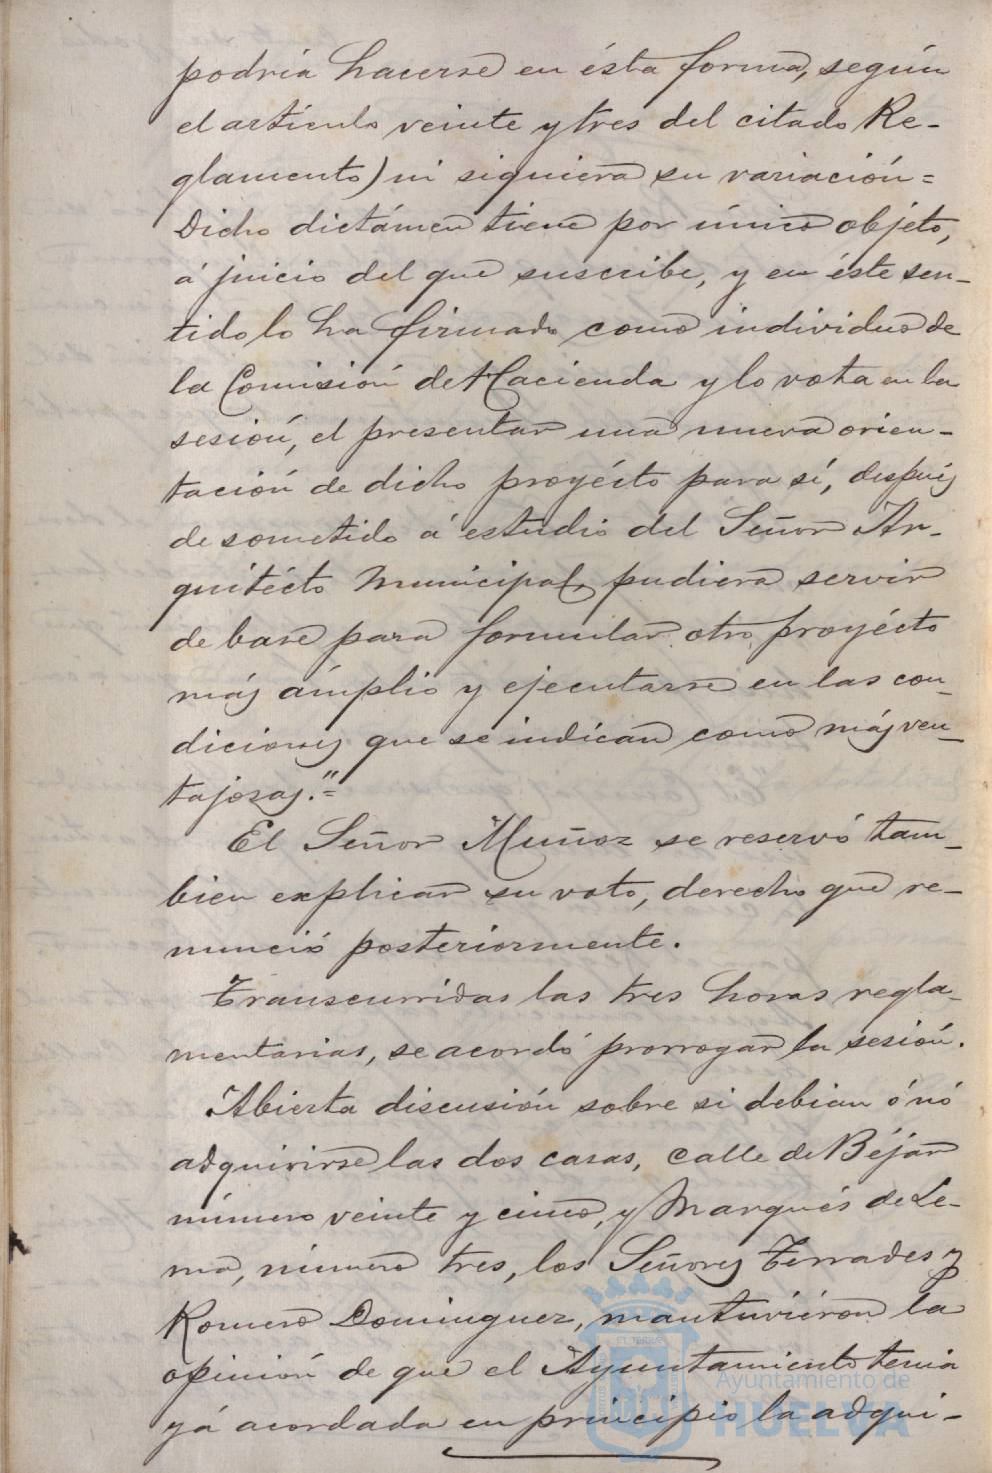 podria hacerse en ésta forma, según
el artículo veinte y tres del citado Re-
glamento) ni siquiera su variación=
Dicho dictámen tiene por único objeto,
á juicio del que suscribe, y en éste sen-
tido lo ha firmado como individuo de
la Comisión de Hacienda y lo vota en la
sesión, el presentar una nueva orien-
tación de dicho proyécto para sí, después
de sometido á estudio del Señor Ar-
quitécto Municipal, pudiera servir
de base para formular otro proyécto
más ámplio y ejecutarse en las con-
diciones que se indican como más ven-
tajosas."=
El Señor Muñoz se reservó tam-
bien explicar su voto, derecho que re-
nunció posteriormente.
Transcurridas las tres horas regla-
mentarias, se acordó prorrogar la sesión.
Abierta discusión sobre si debian ó nó
adquirirse las dos casas, calle de Béjar
número veinte y cinco, y Marqués de Le-
ma, número tres, los Señores Terrades y
Romero Dominguez, mantuviéron la
opinión de que el Ayuntamiento tenia
yá acordada en principio la adqui-
Ayuntamiento de
HUELVA